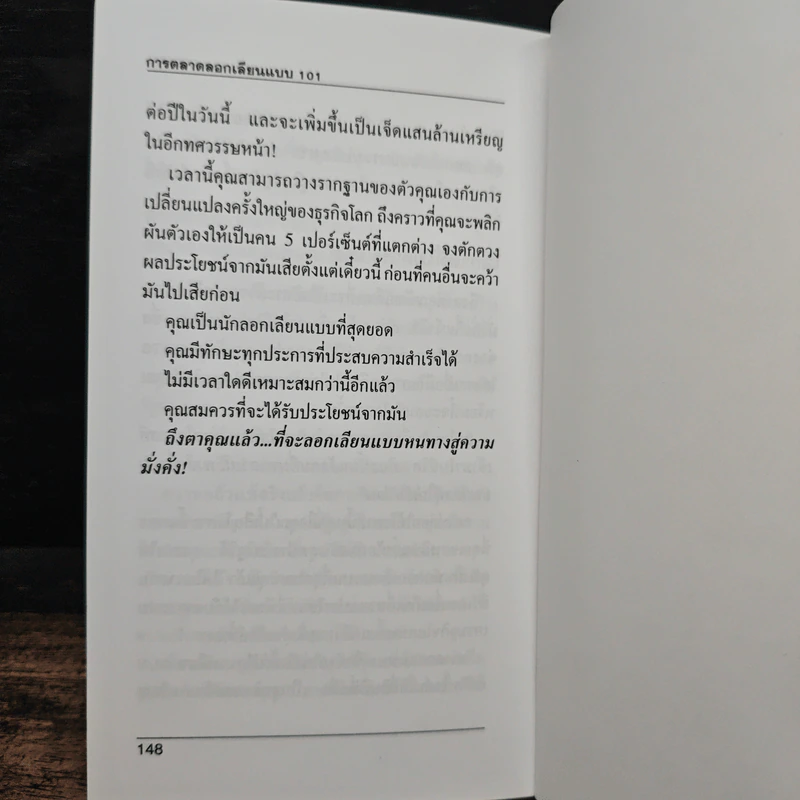 การตลาดลอกเลียนแบบ 101
ต่อปีในวันนี้ และจะเพิ่มขึ้นเป็นเจ็ดแสนล้านเหรียญ
ในอีกทศวรรษหน้า!
เวลานี้คุณสามารถวางรากฐานของตัวคุณเองกับการ
เปลี่ยนแปลงครั้งใหญ่ของธุรกิจโลก ถึงคราวที่คุณจะพลิก
ผันตัวเองให้เป็นคน 5 เปอร์เซ็นต์ที่แตกต่าง จงตักตวง
ผลประโยชน์จากมันเสียตั้งแต่เดี๋ยวนี้ ก่อนที่คนอื่นจะคว้า
มันไปเสียก่อน
คุณเป็นนักลอกเลียนแบบที่สุดยอด
คุณมีทักษะทุกประการที่ประสบความสำเร็จได้
ไม่มีเวลาใดดีเหมาะสมกว่านี้อีกแล้ว
คุณสมควรที่จะได้รับประโยชน์จากมัน
ถึงตาคุณแล้ว...ที่จะลอกเลียนแบบหนทางสู่ความ
มั่งคั่ง!
148